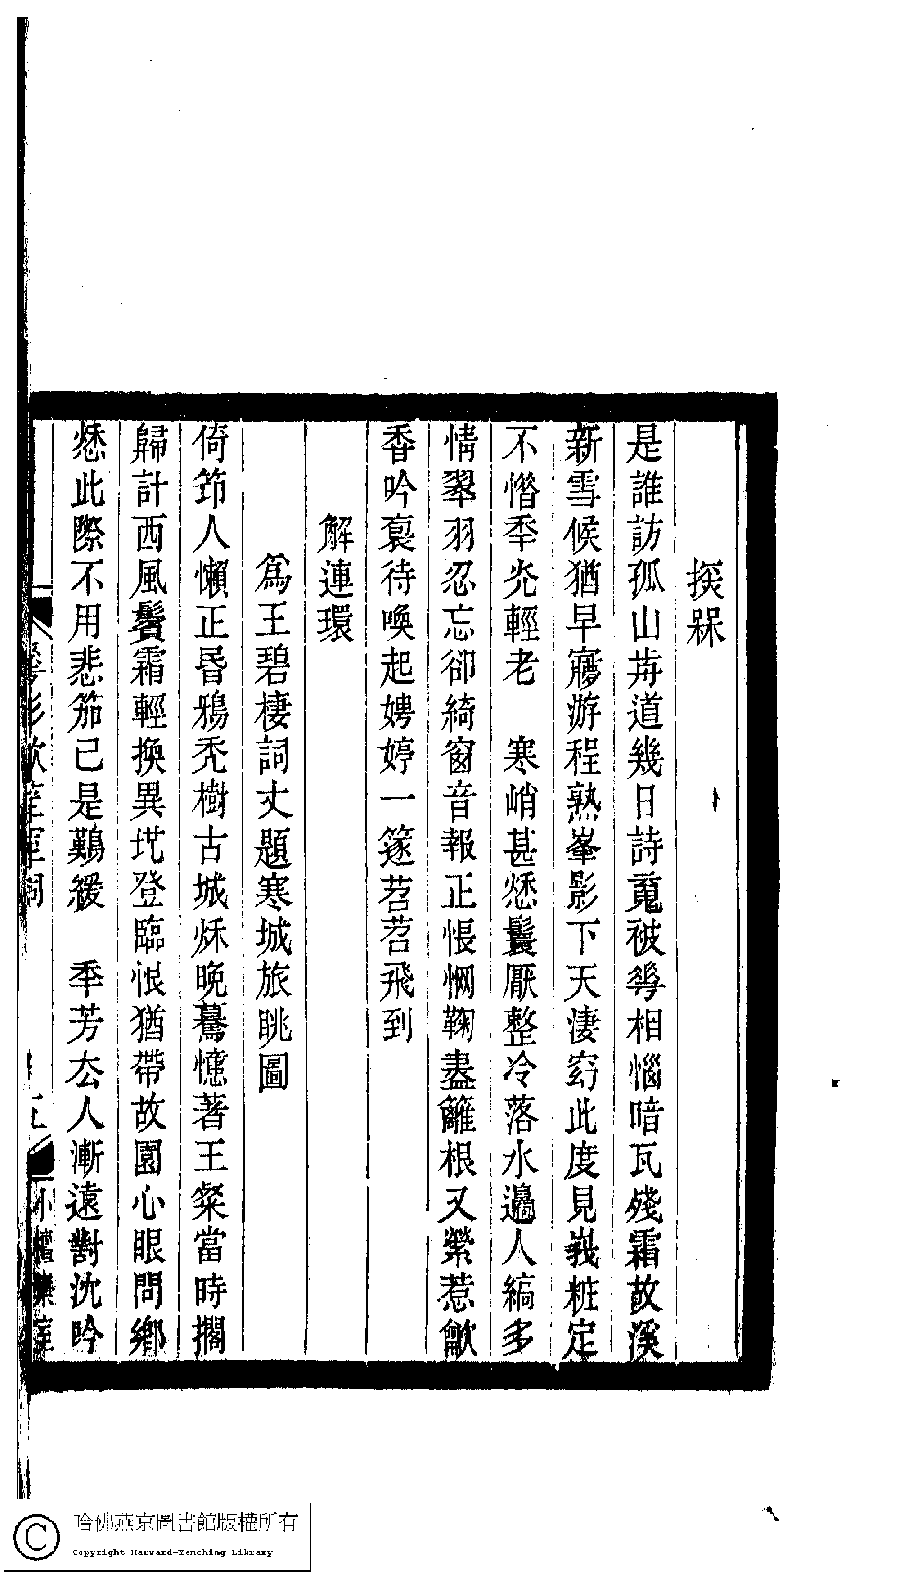 探槑
是誰訪孤山歬道幾日詩䰟被䔢相惱暗瓦殘霜故溪
新雪候猶早寱游程熟峯影下天淒窈此度見峩粧定
不憯秊灮輕老　寒峭甚㥣鬟厭整冷落水邊人縞多
情翠羽忍忘卻綺窗音報正悵惘鞠盡籬根又縈惹歗
香吟褭待喚起娉婷一篴苕苕飛到
解連環
爲王碧棲詞丈題寒城旅眺圖
倚筇人懶正昬鴉禿樹古城秌晚驀憶著王粲當時擱
歸計西風鬢霜輕換異坒登臨恨猶帶故園心眼問鄉
㥣此際不用悲笳已是鷬緩　秊芳厺人漸遠對沈吟
哈佛燕京圖書館版權所有
Copyright Harvard-Yenching Library